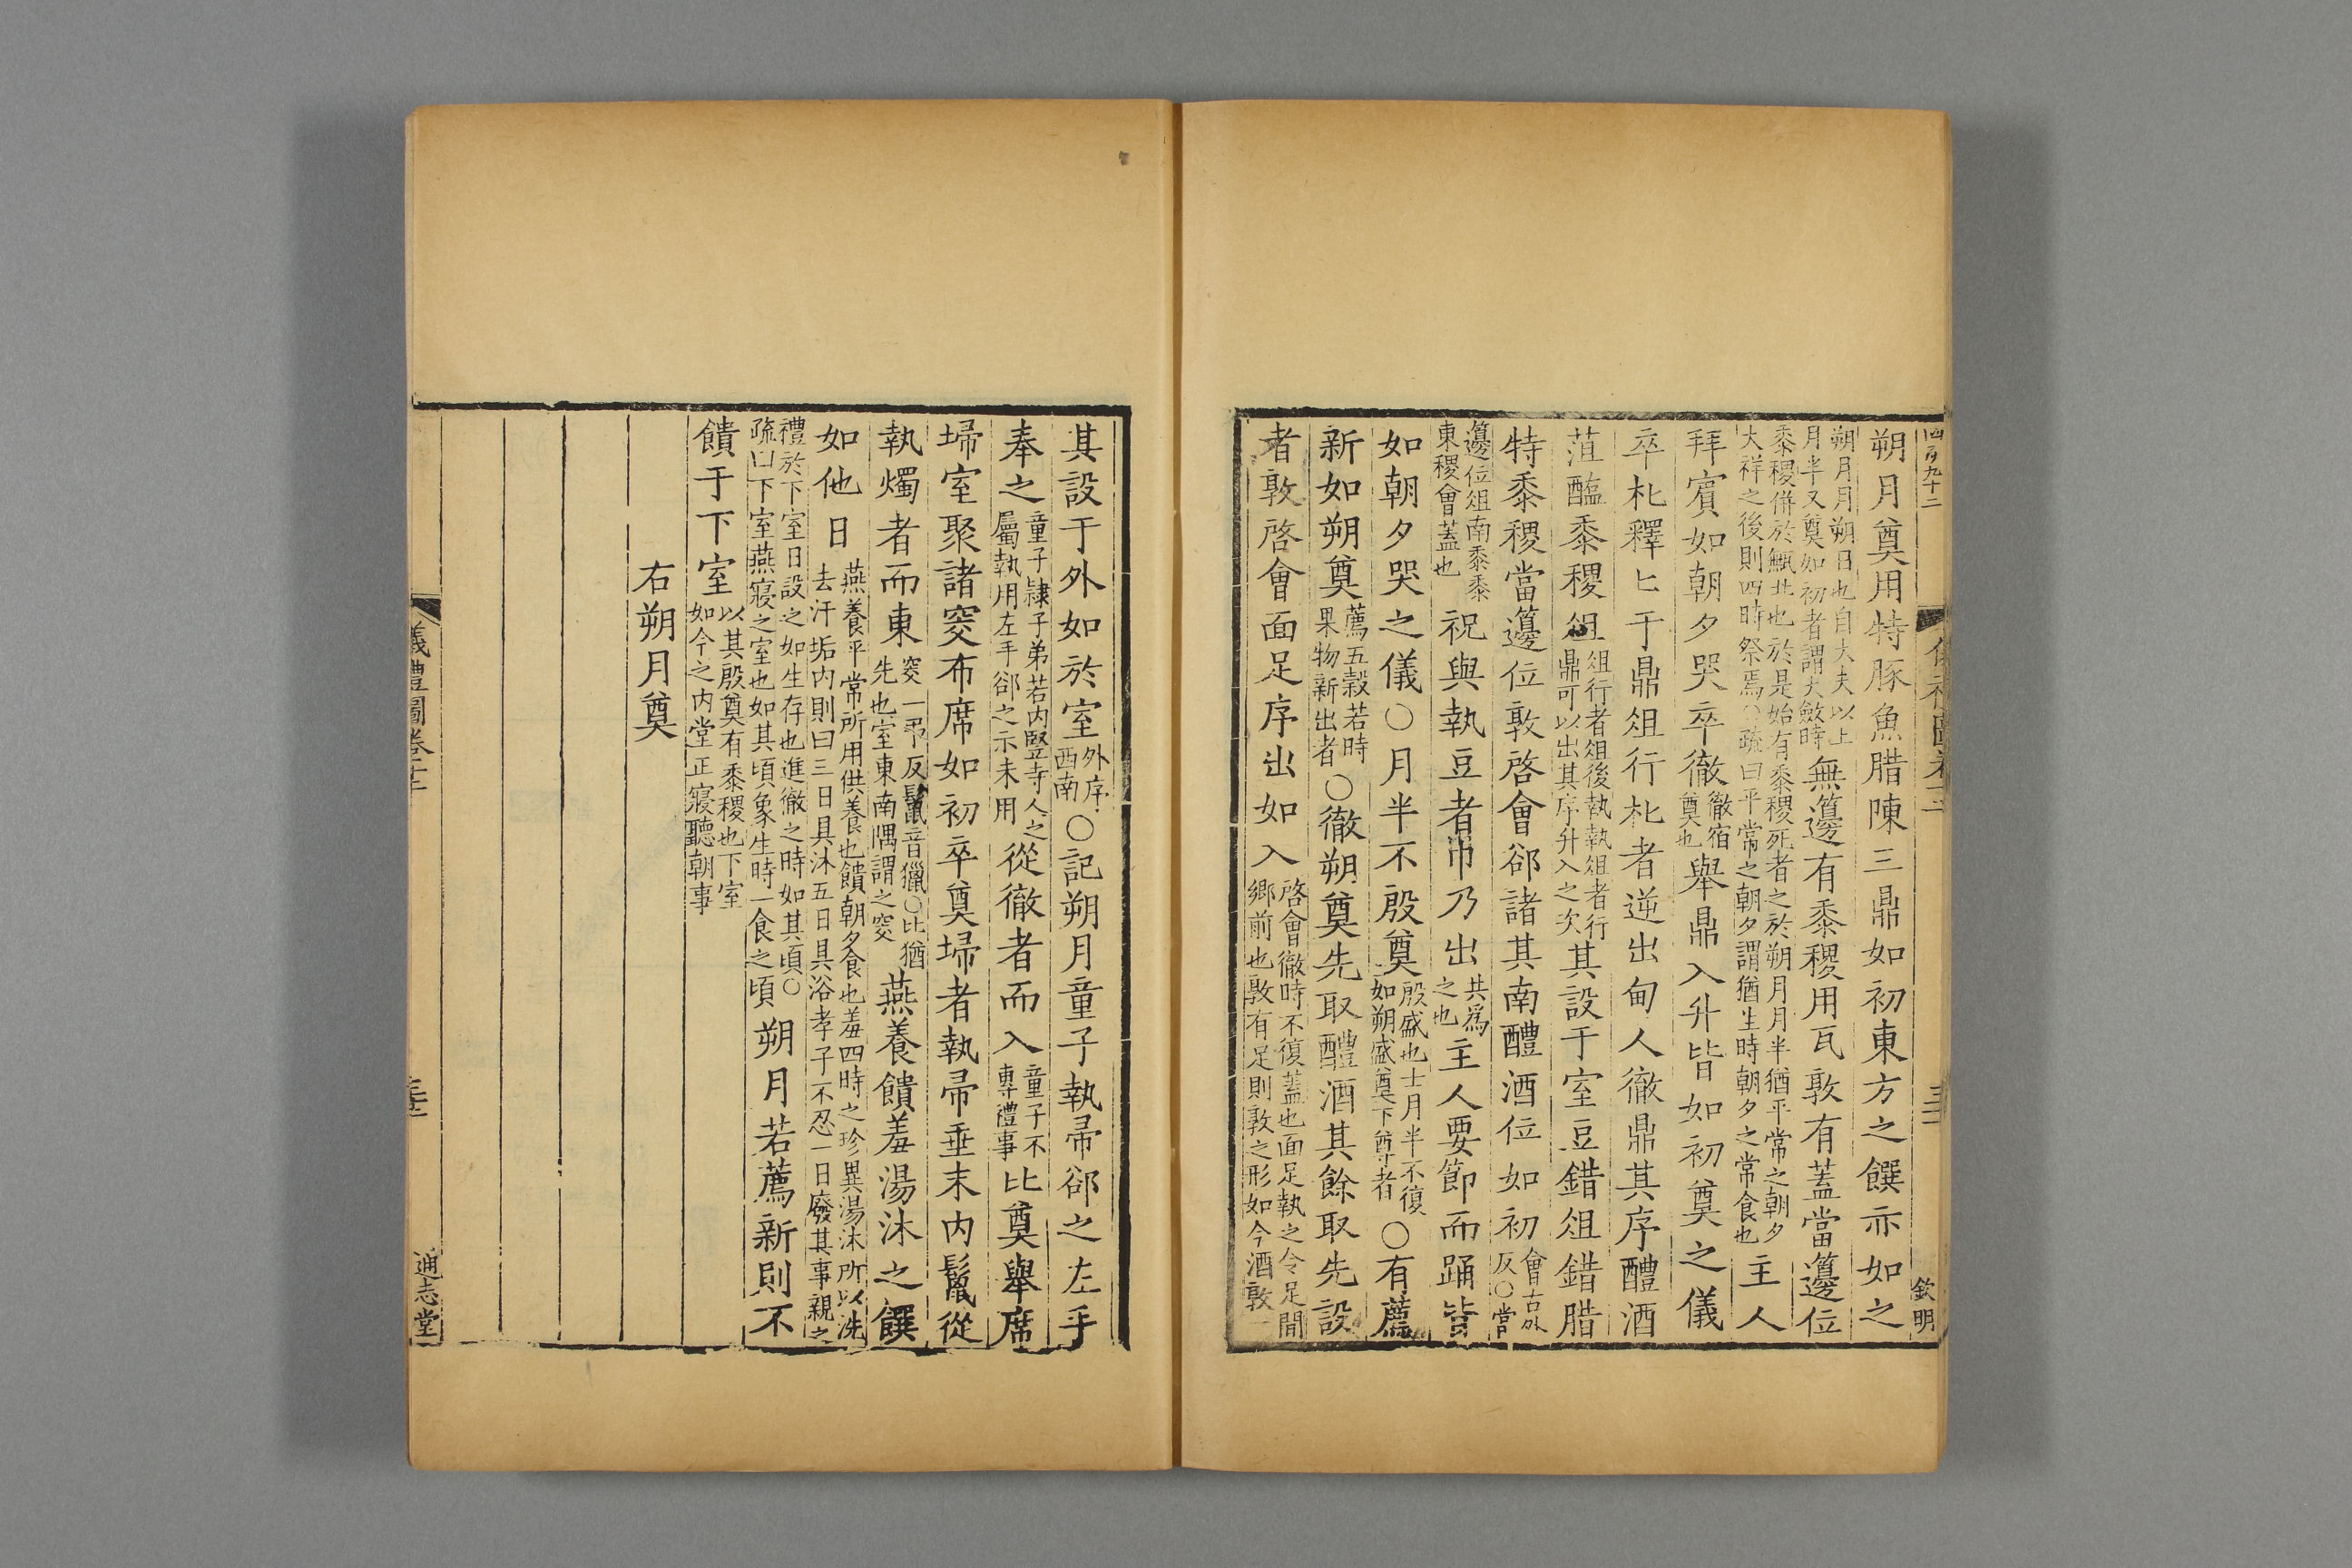 四百九十二
欽明
朔月奠用特豚魚腊陳三鼎如初東方之饌亦如之
朔月月朔日也自大夫以上月半又奠如初者謂大斂時無籩有黍稷用瓦敦有蓋當籩位
黍稷併於甒北也於是始有黍稷死者之於朔月月半猶平常之朝夕大祥之後則四時祭焉○疏曰平常之朝夕謂猶生時朝夕之常食也主人
拜賓如朝夕哭卒徹徹宿奠也舉鼎入升皆如初奠之儀
卒朼釋匕于鼎俎行朼者逆出甸人徹鼎其序醴酒
菹醢黍稷俎俎行者俎後執執俎者行鼎可以出其序升入之次其設于室豆錯俎錯腊
特黍稷當籩位敦啓會郤諸其南醴酒位如初會古外反○當
籩位俎南黍黍東稷會蓋也祝與執豆者巾乃出共爲之也主人要節而踊皆
如朝夕哭之儀○月半不殷奠殷盛也士月半不復如朔盛奠下尊者○有薦
新如朔奠薦五穀若時果物新出者○徹朔奠先取醴酒其餘取先設
者敦啓會面足序出如入啓會徹時不復蓋也面足執之令足間鄉前也敦有足則敦之形如今酒敦
其設于外如於室外序西南○記朔月童子執帚郤之左手
奉之童子隸子弟若内豎寺人之屬執用左手郤之示未用從徹者而入童子不專禮事比奠舉席
埽室聚諸窔布席如初卒奠埽者執帚垂末内鬛從
執燭者而東窔一弔反鬛音獵○比猶先也室東南隅謂之窔燕養饋羞湯沐之饌
如他日燕養平常所用供養也饋朝夕食也羞四時之珍異湯沐所以洗去汙垢内則曰三日具沐五日具浴孝子不忍一日廢其事親之
禮於下室日設之如生存也進徹之時如其頃○疏曰下室燕寢之室也如其頃象生時一食之頃朔月若薦新則不
饋于下室以其殷奠有黍稷也下室如今之内堂正寢聽朝事
右朔月奠
儀禮圖卷十二
通志堂